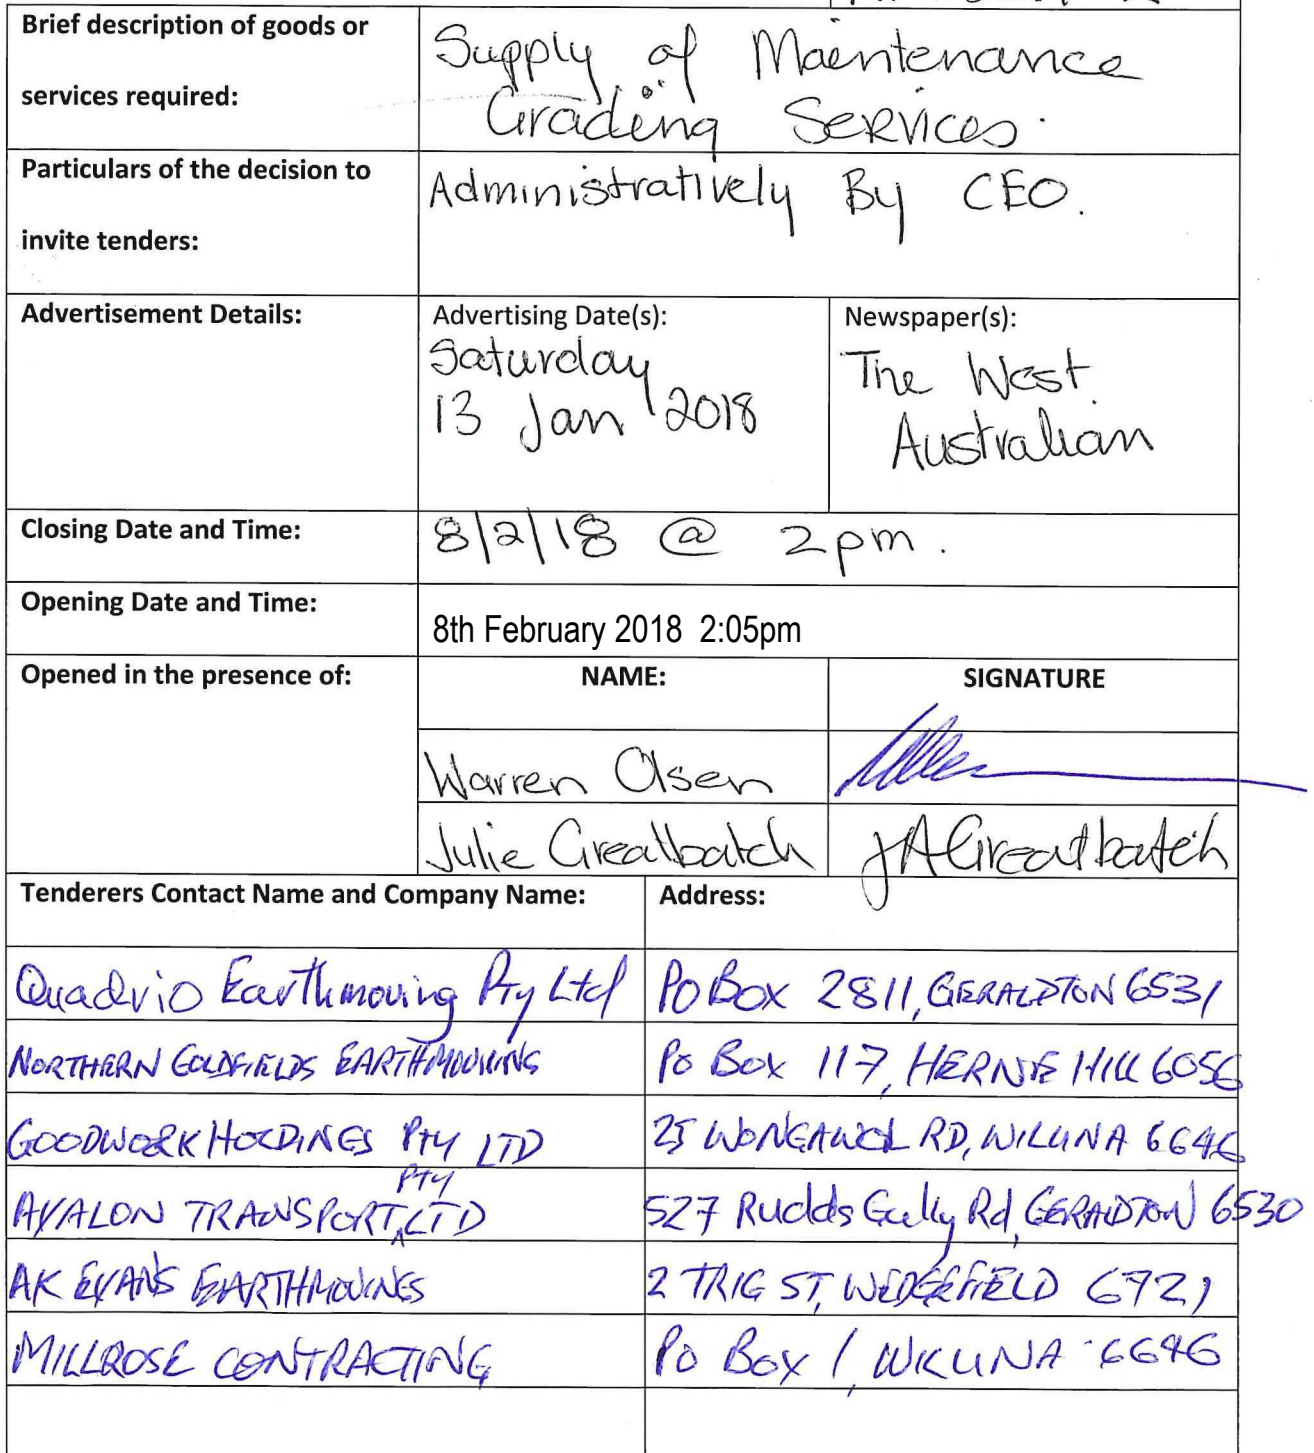 Brief description of goods or
services required:
Supply of Maintenance
Grading Services.
Particulars of the decision to
invite tenders:
Administratively By CEO.
Advertisement Details:
Advertising Date(s):
Saturday
13 Jan 2018
Newspaper(s):
The West
Australian
Closing Date and Time:
8/2/18 @ 2pm.
Opening Date and Time:
8th February 2018 2:05pm
Opened in the presence of:
NAME:
SIGNATURE
Warren Olsen
Julie Greatbatch
JAGreatbatch
Tenderers Contact Name and Company Name:
Address:
Quadrio Earthmoving Pty Ltd
PO Box 2811, GERALDTON 6531
NORTHERN GOLDFIELDS EARTHMOVING
Po Box 117, HERNE HILL 6056
GOODWORK HOLDINGS Pty LTD
25 WONGAWOL RD, WILUNA 6646
AVALON TRANSPORT PTY LTD
527 Rudds Gully Rd, GERALDTON 6530
AK EVANS EARTHMOVING
2 TRIG ST, WEDGEFIELD 6721
MILLROSE CONTRACTING
Po Box 1, WILUNA 6646